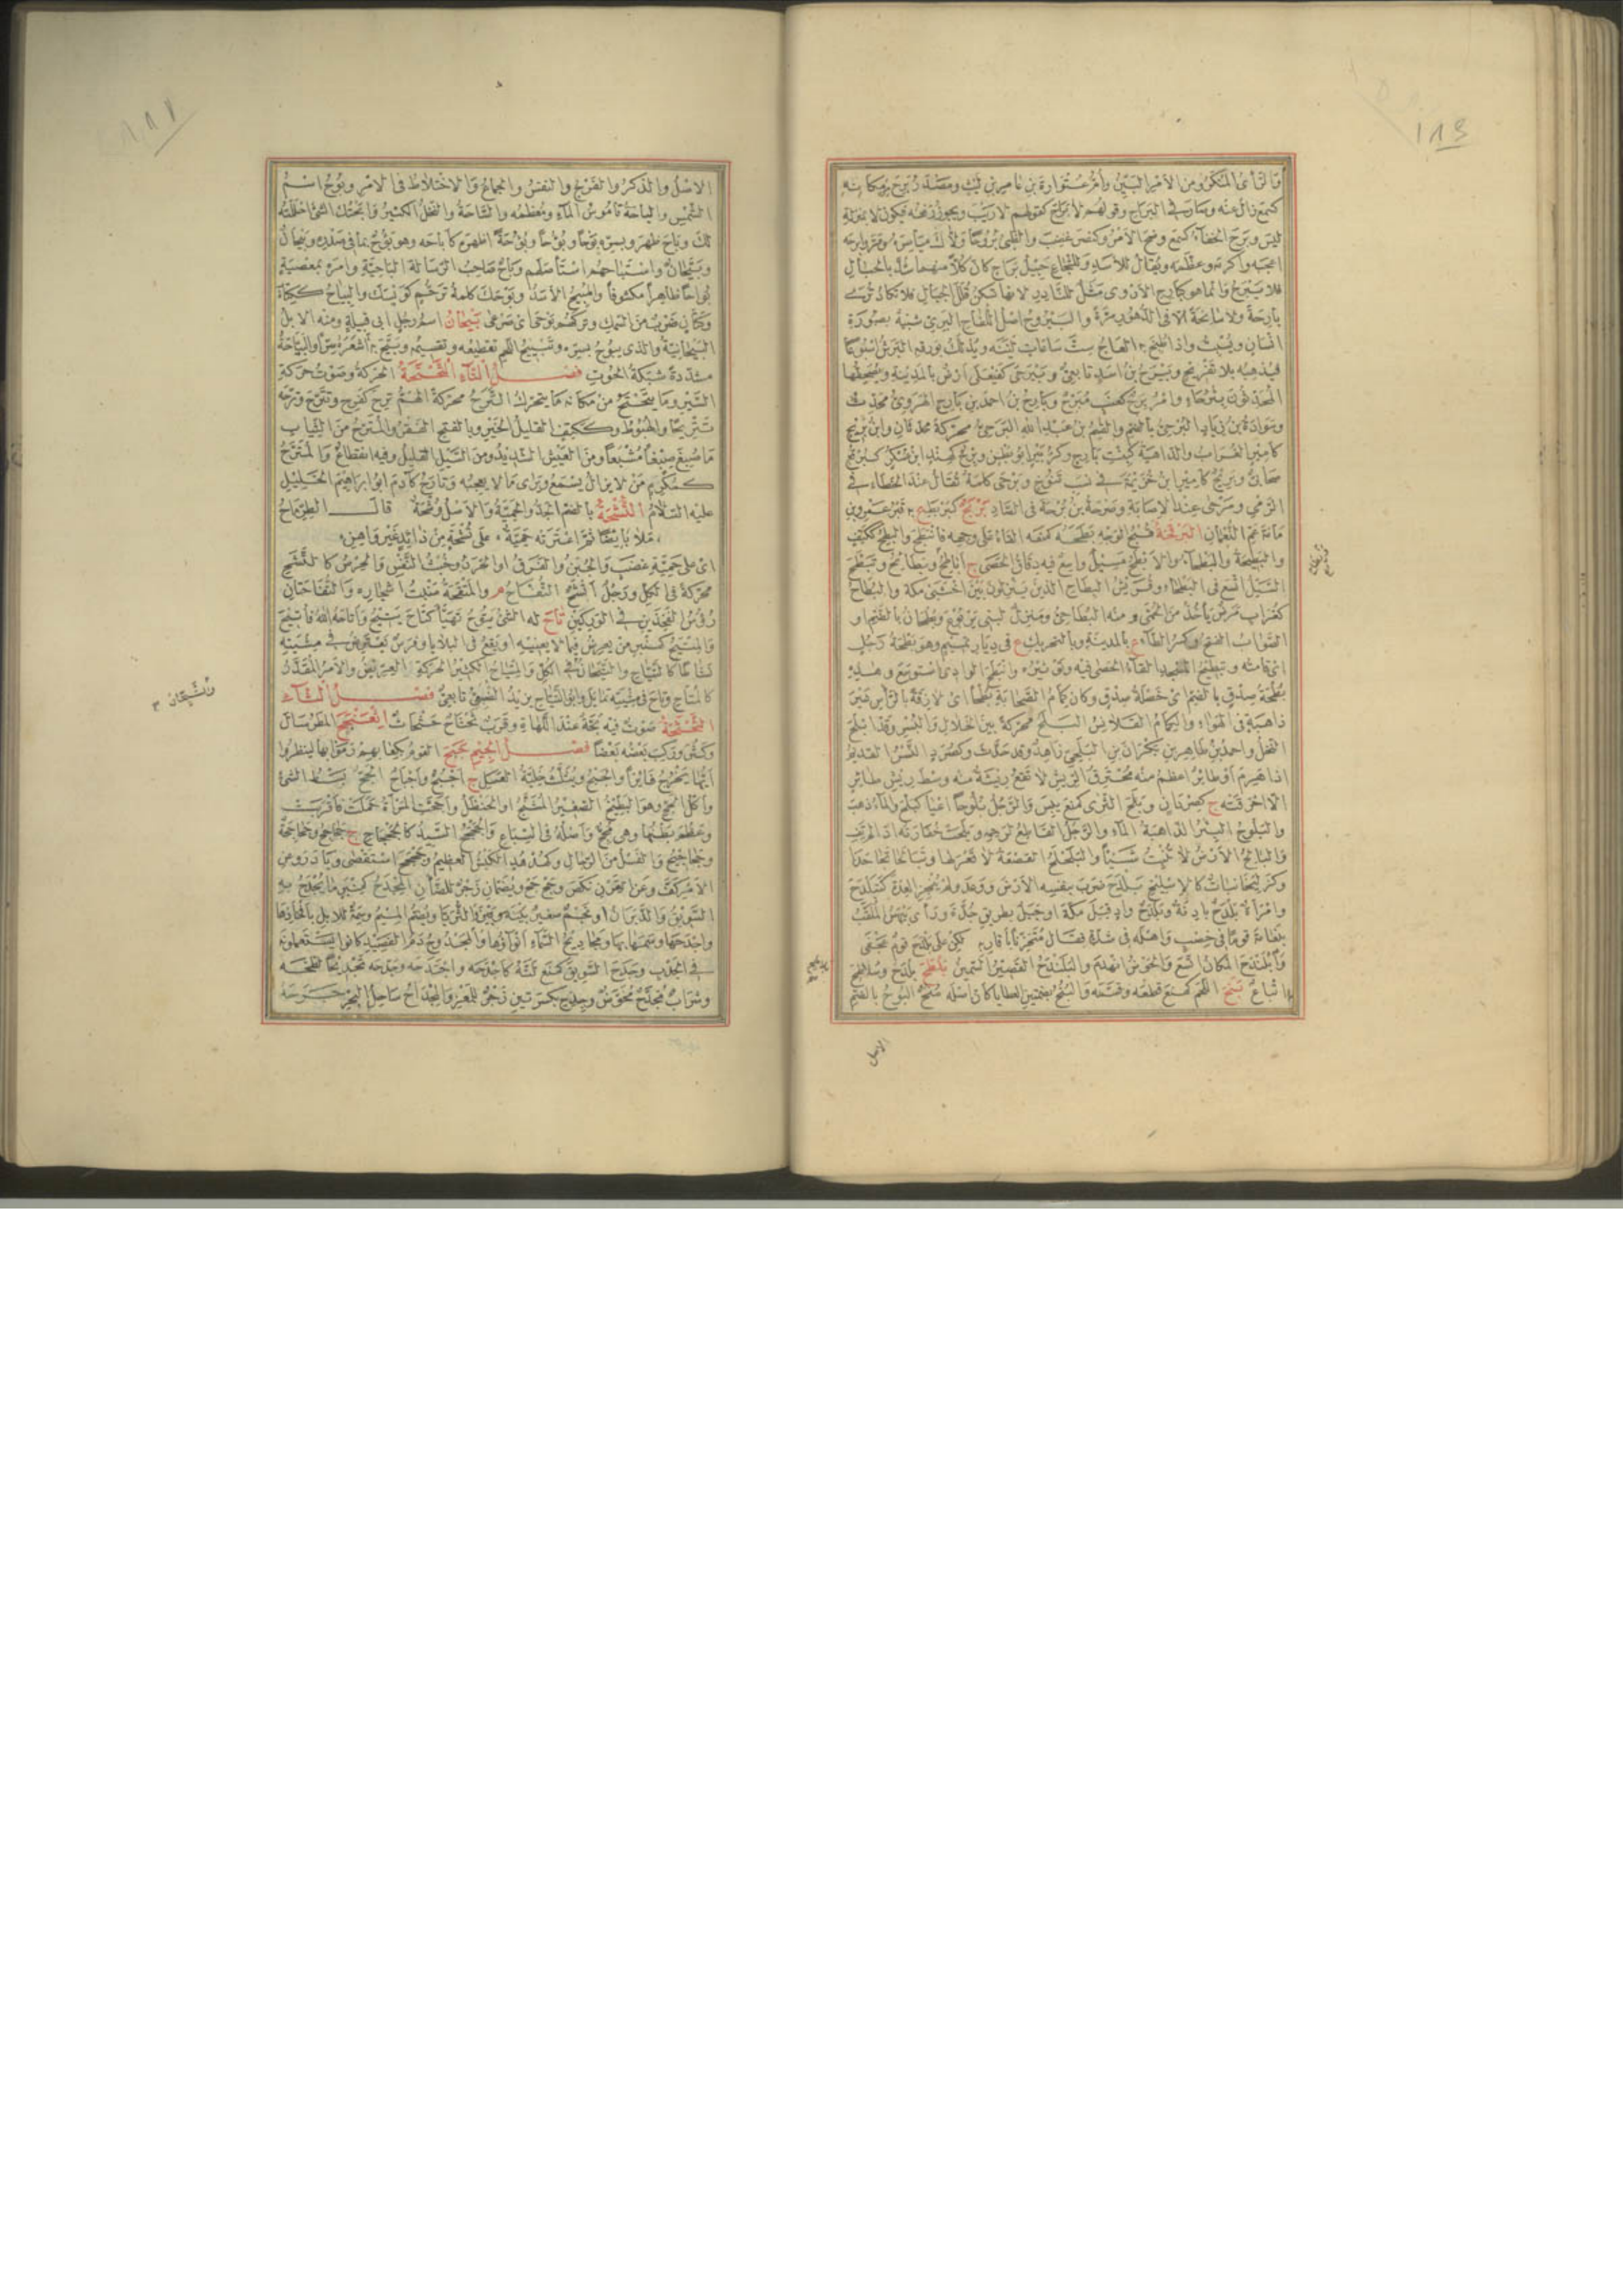 والرأى المنكر ومن الأمر البين وأم عتوارة بن عامر بن ليث ومصدر برح مكانه
كسمع زال عنه وصار فى البراح وقولهم لا براح كقولهم لا ريب ويجوز رفعه فيكون لا بمنزلة
ليس وبرح الخفاء كسمع وضح الأمر وكنصر غضب والظبى بروحا ولاك مياسره ومر وأبرحه
اعجبه واكرمه وعظمه ويقال للأسد وللشجاع حبيل براح كان كلا منهما شد بالحبال
فلا يبرح وانما هو كبارح الأروى مثل للنادر لانها تسكن قنن الجبال فلا تكاد ترى
بارحة ولا سانحة الا فى الدهور مرة واليبروح اصل اللفاح البرى شبيه بصورة
انسان ويسبت واذا طبخ به العاج ست ساعات لينه ويدلك بورقه البرش اسبوعا
فيذهبه بلا تقريح وبيرح بن اسد تابعى وبيرحى كفيعلى ارض بالمدينة ويصحفها
المحدثون بئر حاء وامر برح كعنب مبرح وبارح بن احمد بن بارح الهروى محدث
وسوادة بن زياد البرحى بالضم والقسم بن عبد الله البرحى محركة محدثان وابن بريح
كأمير الغراب والداهية كبنت بارح وكزبير ابو بطن وبرح كهند ابن عسكر كبرقع
صحابى وبريح كأمير ابن خزيمة فى نسب تنوخ وبرحى كلمة تقال عند الخطاء فى
الرمى ومرحى عند الاصابة وصرحة بن برحة فى الصاد بربح كبربطح ع به قبر عمرو بن
مامة عم النعمان البرقحة قبح الوجه بطحه كمنعه القاه على وجهه فانبطح والبطح ككتف
والبطيحة والبطحاء والأبطح مسيل واسع فيه دقاق الحصى ج أباطح وبطاح وبطائح وتبطح
السيل اتسع فى البطحاء وقريش البطاح الذين ينزلون بين اخشبى مكة والبطاح
كغراب مرض يأخذ من الحمى ومنه البطاحى ومنزل لبنى يربوع وبطحان بالضم او
الصواب الفتح وكسر الطاء ع بالمدينة وبالتحريك ع فى ديار تميم وهو بطحة رجل
اى قامته وتبطيح المسجد القاء الحصى فيه وتوثيره وانبطح الوادى استوسع وهذه
بطحة صدق بالضم اى خصلة صدق وكان كمام الصحابة بطحا اى لازقة بالرأس غير
ذاهبة فى الهواء والكمام القلانس البلح محركة بين الخلال والبسر وقد ابلح
النخل واحمد بن طاهر بن بكران بن البلحى زاهد وقد حدث وكصرد النسر القديم
اذا هرم او طائر اعظم منه محترق الريش لا تقع ريشة منه وسط ريش طائر
الا احرقته ج كصردان وبلح الثرى كمنع يبس والرجل بلوحا اعيا كبلح والماء ذهب
والبلوح البئر الذاهبة الماء والرجل القاطع لرحمه وبلحت خفارته اذا لم يف
والبالح الأرض لا تنبت شيئا والبلحلح القصعة لا قعر لها وتبالحا تجاحدا
وبلدح ضرب بنفسه الأرض ووعد ولم ينجز العدة كتبلدح
وامرأة بلدح بادنة وبلدح واد قبل مكة او جبل بطريق جدة ورأى بيهس الملقب
بنعامة قوما فى خصب واهله فى شدة فقال متحزنا باقاربه لكن على بلدح قوم عجفى
وابلندح المكان اتسع والحوض انهدم والبلندح القصير السمين بلطح بلدح وسلاطح
بلاطح اتباع بنح اللحم كمنع قطعه وقسمه والبنح بضمتين العطايا كأن اصله منح البوح بالضم
الاصل
الاصل والذكر والفرج والنفس والجماع والاختلاط فى الامر وبوح اسم
الشمس والباحة قاموس الماء ومعظمه والساحة والنخل الكثير وابحتك الشئ احللته
لك وباح ظهر وبسره بوحا وبؤوحا وبؤوحة اظهره كأباحه وهو بؤوح بما فى صدره وبيحان
وبيحان واستباحهم استأصلهم وباح صاحب الرسالة الباحية وامره بمعصية
بواحا ظاهرا مكشوفا والمبيح الأسد وبوحك كلمة ترحم كويسك والبياح ككتاب
وكتان ضرب من السمك وتركهم بوحى اى صرعى بيحان اسم رجل ابى قبيلة ومنه الابل
البيحانية والذى يبوح بسره وتبييح اللحم تقطيعه وتقسيمه وبيح به اشعره سرا والبياحة
مشددة شبكة الحوت فصل التاء التحتحة الحركة وصوت حركة
السير وما يتتحتح من مكانه ما يتحرك الترح محركة الهم ترح كفرح وتترح وترحه
تتريحا والهبوط وككتف القليل الخير وبالفتح الفقر والمترح من الثياب
ما صبغ صبغا مشبعا ومن العيش الشديد ومن السيل القليل وفيه انقطاع والمترح
كمكرم من لا يزال يسمع ويرى ما لا يعجبه وتارح كآدم ابو ابراهيم الخليل
عليه السلام التشحة بالضم الجد والحمية والاصل وشحة قال الطرماح
ملا بائصا ثم اعترته حمية ٭ على تشحة من ذائد غير واهن
اى على حمية غضب والجبن والفرق او الحرد وخبث النفس والحرص كالتشح
محركة فى الكل ورجل اتشح التفاح م والمتفحة منبت اشجاره والتفاحتان
رؤس الفخذين فى الوركين تاح له الشئ يتوح تهيأ كتاح يتيح واتاحه الله فأتيح
والمتيح كمنبر من يعرض فيما لا يعنيه او يقع فى البلايا وفرس يعترض فى مشيته
نشاطا كالتياح والتيحان فى الكل والمتياح الكثير الحركة العريض والامر المقدر
كالمتاح وتاح فى مشيته تمايل وابو التياح يزيد الضبعى تابعى فصل الثاء
الثحثحة صوت فيه بحة عند اللهاة وقرب ثحثاح حثحاث اثعنجح المطر سال
وكثر وركب بعضه بعضا فصل الجيم جبح القوم بكعابهم رموا بها لينظروا
ايها يخرج فائزا والجبح ويثلث خلية العسل ج اجبح وأجباح الجح بسط الشئ
واكل الجح وهو البطيخ الصغير المشنج او الحنظل واجحت المرأة حملت فأقربت
وعظم بطنها وهى مجح واصله فى السباع والجحجح السيد كالجحجاح ج جحاجح وجحاجحة
وجحاجيح والفسل من الرجال وكهدهد الكبش العظيم وجحجح استقصى وبادر وعن
الامر كف وعن القرن نكص وجح جح ويضمان زجر للضأن المجدح كمنبر ما يجدح به
السويق والدبران او نجم صغير بينه وبين الثريا ويضم الميم وسمة للابل بأفخاذها
واجدحها وسمها بها ومجاديح السماء انواؤها والمجدوح دم الفصيد كانوا يستعملونه
فى الجدب وجدح السويق كمنع لته كأجدحه واجتدحه وجدحه تجديحا لطخه
وشراب مجدح مخوض وجدح بكسرتين زجر للمعز والمجداح ساحل البحر جرحه
والتيحان